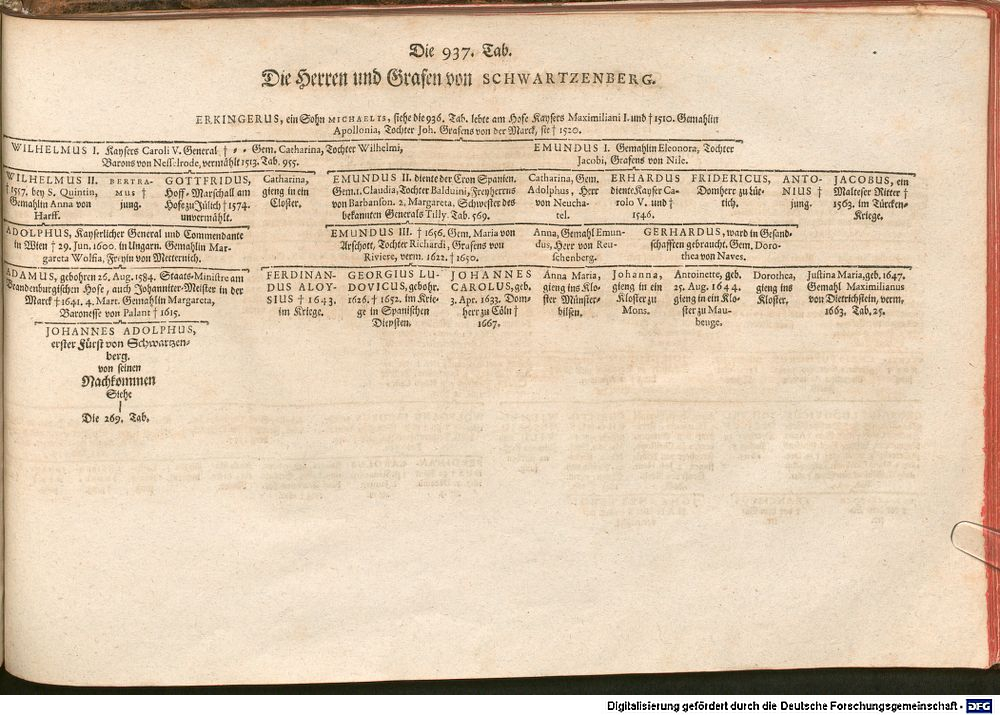 Die 937. Tab.
Die Herren und Grafen von SCHWARTZENBERG.
ERKINGERUS, ein Sohn MICHAELIS, siehe die 936. Tab. lebte am Hofe Kaysers Maximiliani I. und † 1510. Gemahlin
Apollonia, Tochter Joh. Grafens von der Marck, sie † 1520.
WILHELMUS I. Kaysers Caroli V. General † - - Gem. Catharina, Tochter Wilhelmi,
Barons von Nesselrode, vermählt 1513. Tab. 955.
EMUNDUS I. Gemahlin Eleonora, Tochter
Jacobi, Grafens von Nile.
WILHELMUS II.
† 1557. bey S. Quintin,
Gemahlin Anna von
Harff.
BERTRA-
MUS †
jung.
GOTTFRIDUS,
Hoff-Marschall am
Hofe zu Jülich † 1574.
unvermählt.
Catharina,
gieng in ein
Closter.
EMUNDUS II. diente der Cron Spanien.
Gem. 1. Claudia, Tochter Balduini, Freyherrns
von Barbanson. 2. Margareta, Schwester des
bekannten Generals Tilly. Tab. 569.
Catharina, Gem.
Adolphus, Herr
von Neucha-
tel.
ERHARDUS
diente Kayser Ca-
rolo V. und †
1546.
FRIDERICUS,
Domherr zu Lüt-
tich.
ANTO-
NIUS †
jung.
JACOBUS, ein
Malteser Ritter †
1563. im Türcken-
Kriege.
ADOLPHUS, Kayserlicher General und Commendante
in Wien † 29. Jun. 1600. in Ungarn. Gemahlin Mar-
gareta Wolfia, Freyin von Metternich.
EMUNDUS III. † 1656. Gem. Maria von
Arschott, Tochter Richardi, Grafens von
Riviere, verm. 1622. † 1650.
Anna, Gemahl Emun-
dus, Herr von Reu-
schenberg.
GERHARDUS, ward in Gesand-
schafften gebraucht. Gem. Doro-
thea von Naves.
ADAMUS, gebohren 26. Aug. 1584. Staats-Ministre am
Brandenburgischen Hofe, auch Johanniter-Meister in der
Marck † 1641. 4. Mart. Gemahlin Margareta,
Baronesse von Palant † 1615.
FERDINAN-
DUS ALOY-
SIUS † 1643.
im Kriege.
GEORGIUS LU-
DOVICUS, gebohr.
1626. † 1652. im Krie-
ge in Spanischen
Diensten.
JOHANNES
CAROLUS, geb.
3. Apr. 1633. Dom-
herr zu Cöln †
1667.
Anna Maria,
gieng ins Klo-
ster Münster-
bilsen.
Johanna,
gieng in ein
Kloster zu
Mons.
Antoinette, geb.
25. Aug. 1644.
gieng in ein Klo-
ster zu Mau-
beuge.
Dorothea,
gieng ins
Kloster.
Justina Maria, geb. 1647.
Gemahl Maximilianus
von Dietrichstein, verm.
1663. Tab. 25.
JOHANNES ADOLPHUS,
erster Fürst von Schwartzen-
berg.
von seinen
Nachkommen
Siehe
Die 269. Tab.
Digitalisierung gefördert durch die Deutsche Forschungsgemeinschaft - DFG